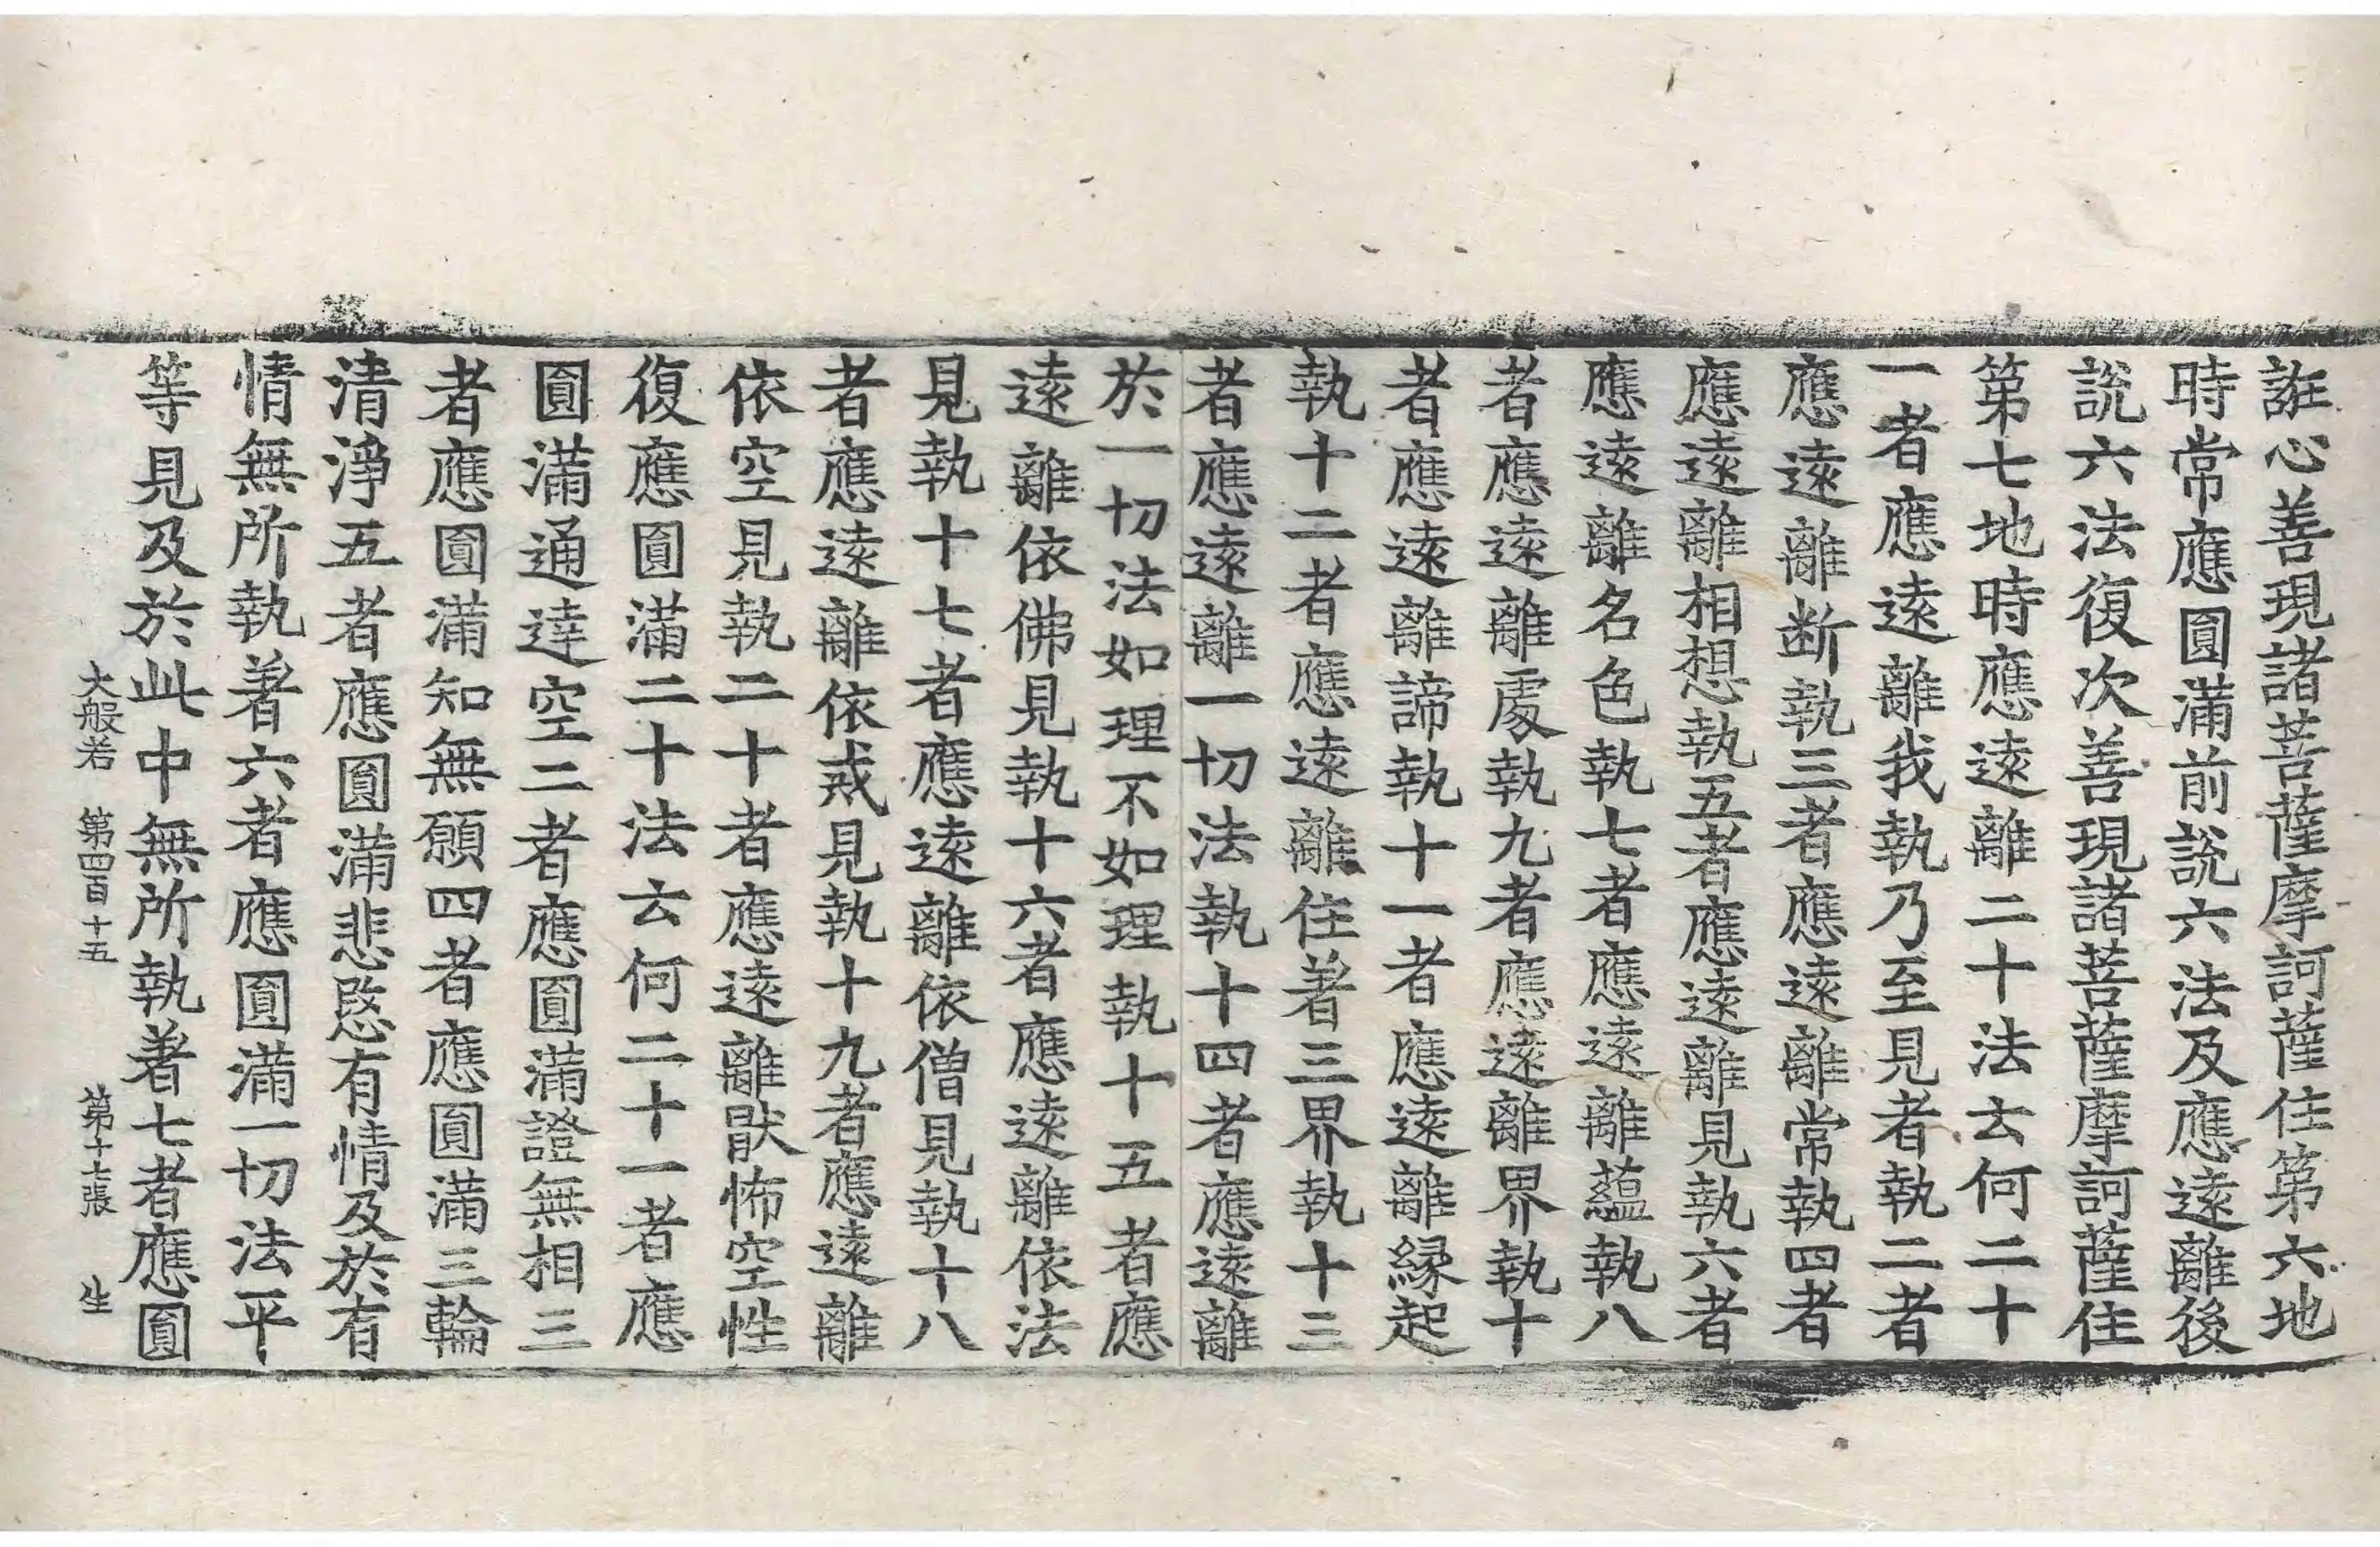 誑心善現諸菩薩摩訶薩住第六地
時常應圓滿前說六法及應遠離後
說六法復次善現諸菩薩摩訶薩住
第七地時應遠離二十法云何二十
一者應遠離我執乃至見者執二者
應遠離断執三者應遠離常執四者
應遠離相想執五者應遠離見執六者
應遠離名色執七者應遠離蘊執八
者應遠離處執九者應遠離界執十
者應遠離諦執十一者應遠離縁起
執十二者應遠離住著三界執十三
者應遠離一切法執十四者應遠離
於一切法如理不如理執十五者應
遠離依佛見執十六者應遠離依法
見執十七者應遠離依僧見執十八
者應遠離依戒見執十九者應遠離
依空見執二十者應遠離猒怖空性
復應圓滿二十法云何二十一者應
圓滿通達空二者應圓滿證無相三
者應圓滿知無願四者應圓滿三輪
清淨五者應圓滿悲愍有情及於有
情無所執著六者應圓滿一切法平
等見及於此中無所執著七者應圓
大般若 第四百十五 第十七張 生